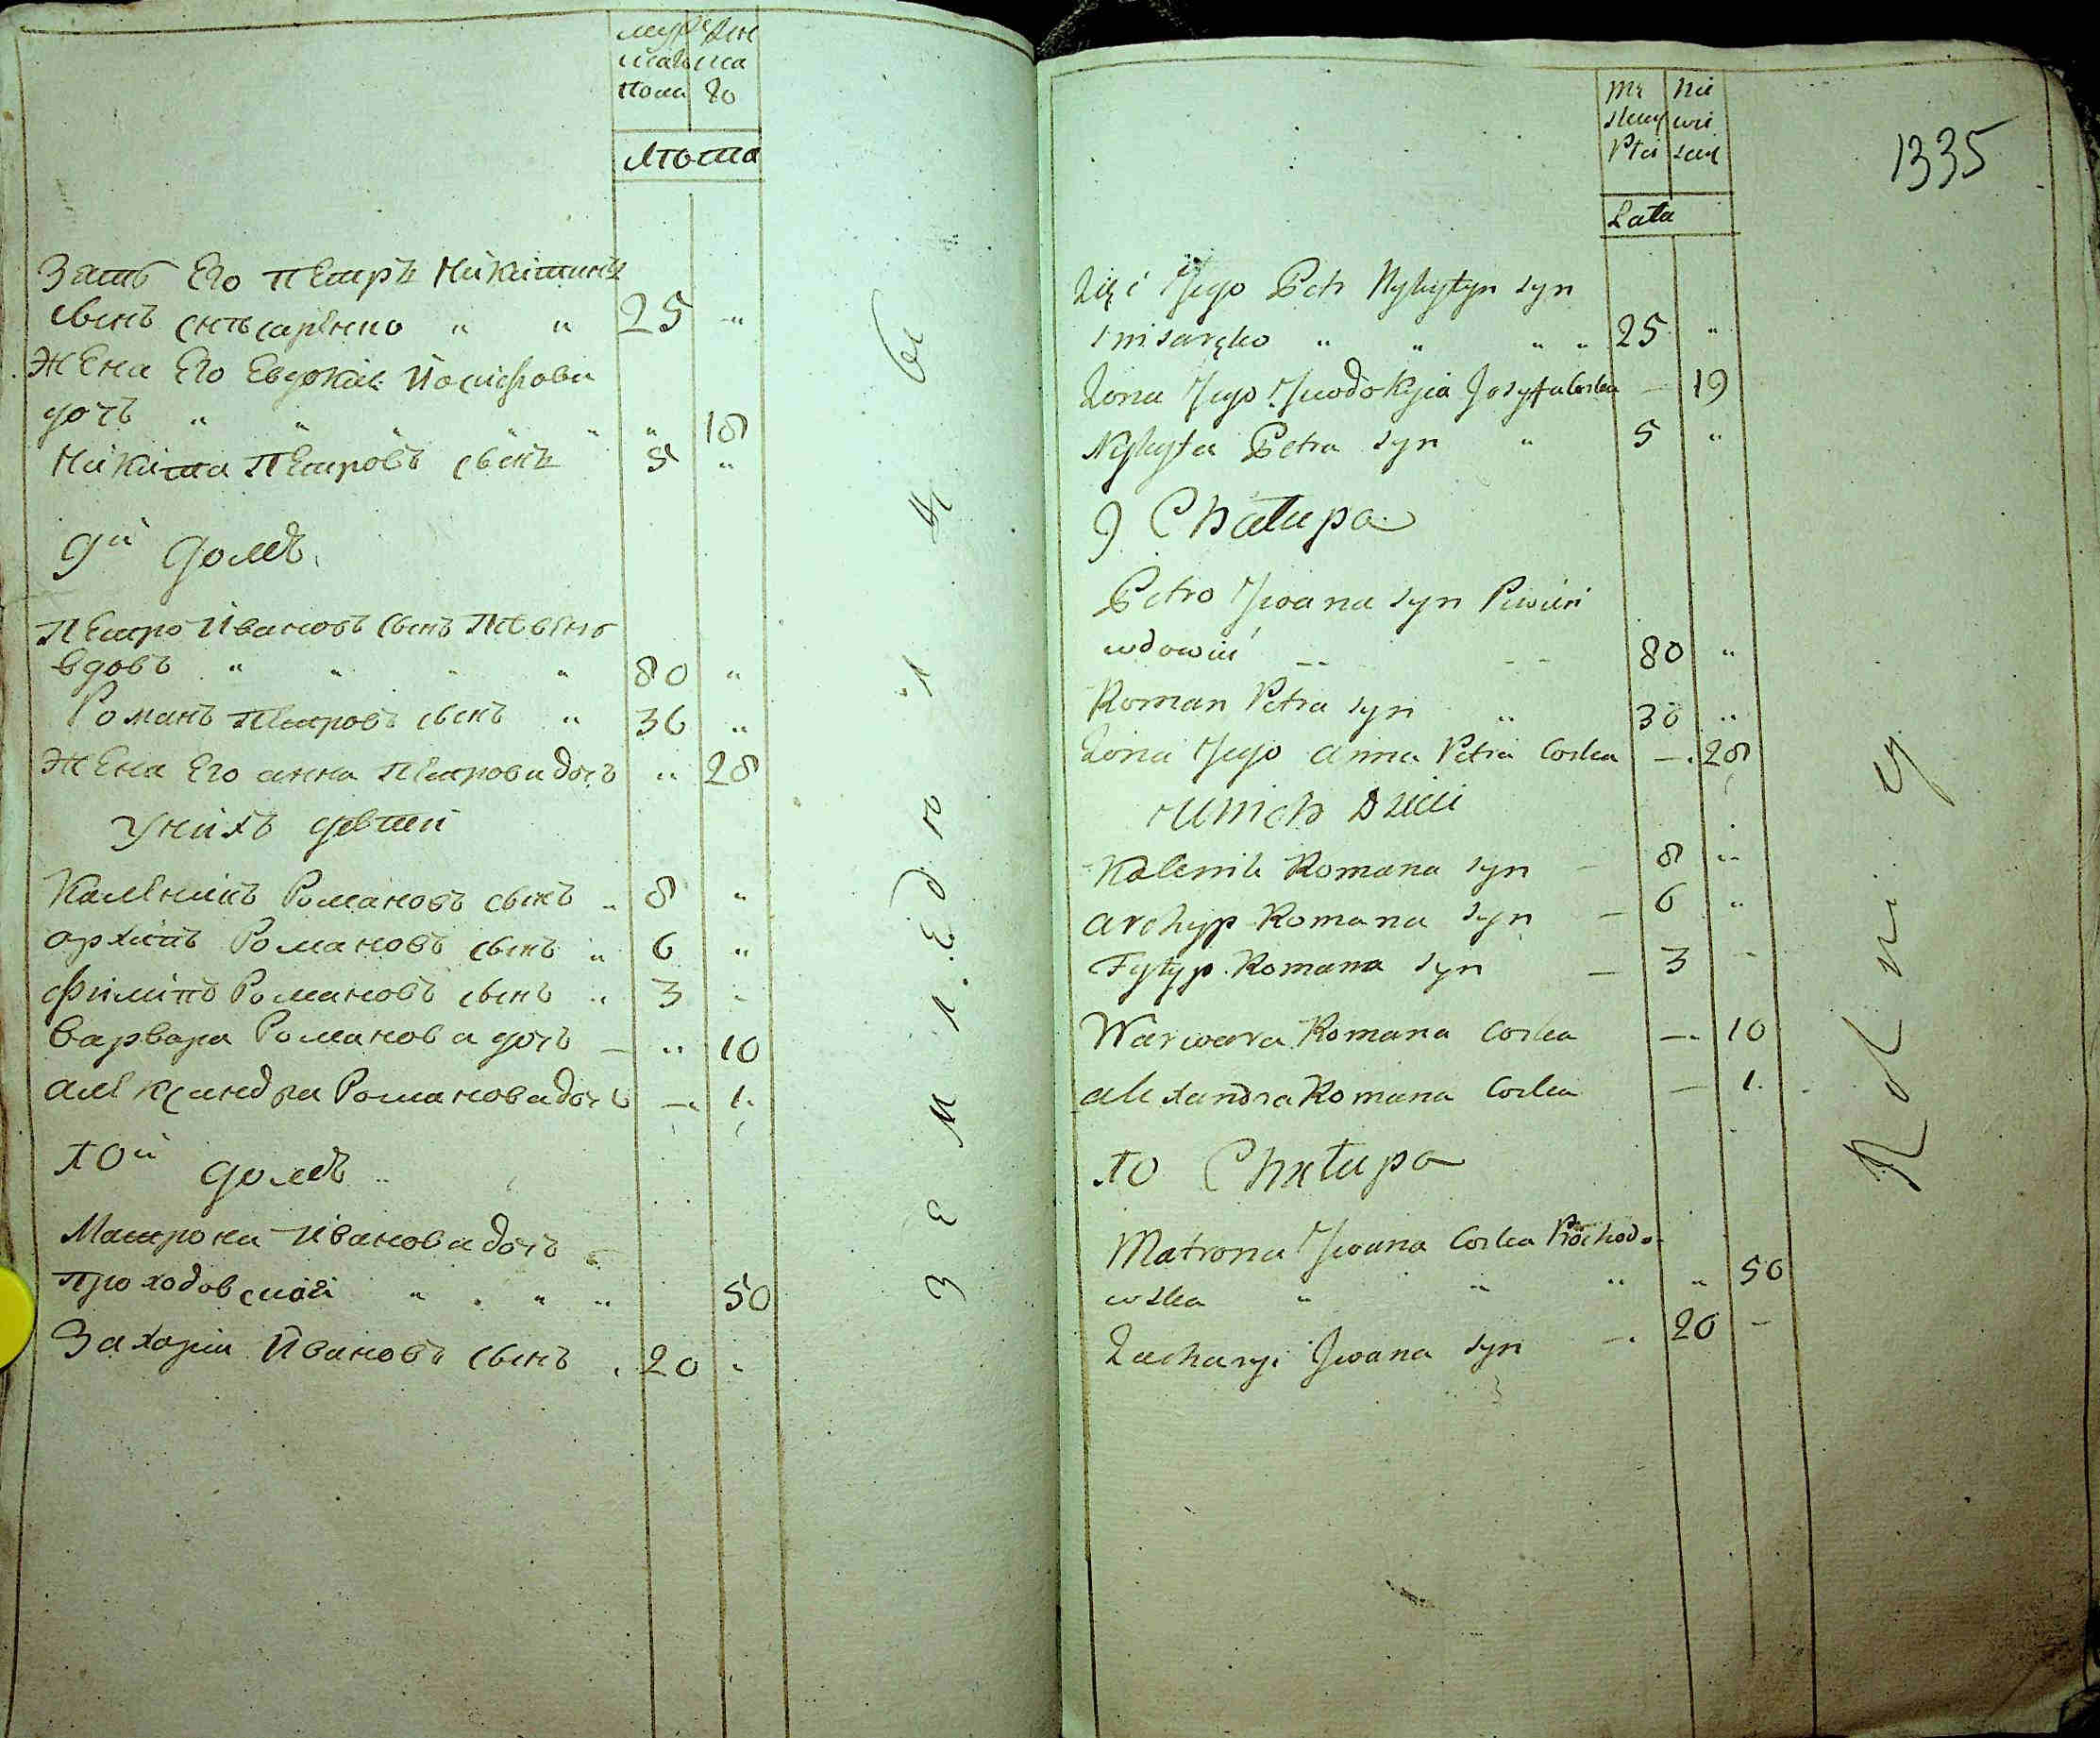 муж жен
ска ска
пола го
Лѣта
Зать Его пЕтръ Никитинъ
сынъ снѣсаренко " " 25 "
ЖЕна Его Евдокія Йосифова
дочъ " " " " " 18
Никита пЕтровъ сынъ 5 "
9й домъ.
пЕтро Ивановъ сынъ
вдовъ " " " " 80 "
Романъ пЕтровъ сынъ " 36 "
ЖЕна Его анна пЕтрова дочъ " 28
Унихъ дѣтей
КалЕникъ Романовъ сынъ " 8 "
архипъ Романовъ сынъ " 6 "
филипъ Романовъ сынъ " 3 "
варвара Романова дочъ — " 10
алЕксандра Романова дочъ — 1.
10й домъ
Матрона Иванова дочъ
проходовская " " " 50
Захарии Ивановъ сынъ . 20 "
З Е М Л Е Д
1335
Mę Nie
skiey wie
Płci sciey
Lata
Zięć Jego Petr Nykytyn syn
snisaręko " " " " 25 "
żona Jego Jewdokyia Josyfa Corka — 19
Nykyta Petra syn " 5 "
9 Chałupa
Petro Jwana syn
wdowiec 80 "
Roman Petra syn " 36 "
żona Jego anna Petra Corka — 28
U nich Dzieci
Kalenik Romana syn — 8 "
archyp Romana syn — 6 "
Fyłyp Romana syn — 3 -
Warwara Romana Corka — 10
alexandra Romana Corka — 1.
10 Chałupa
Matrona Jwana Corka Prochodo-
wska " " " " 50
Zacharyi Jwana syn — 20 -
R o l n i c y